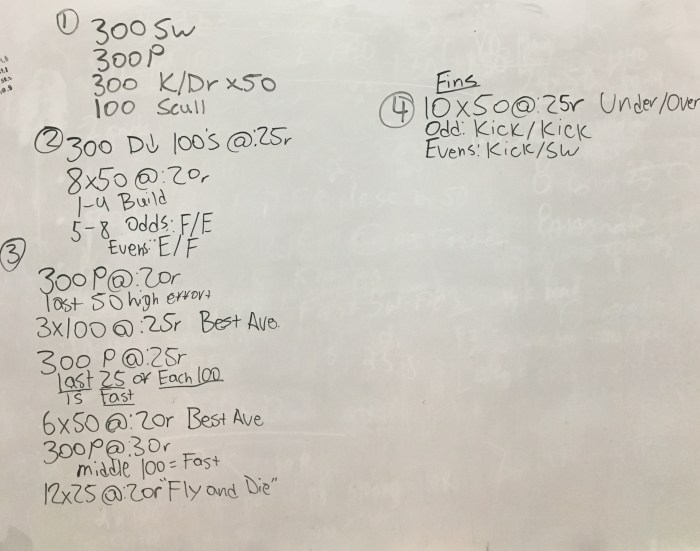 ① 300 SW
300 P
300 K/Dr x50
100 Scull
② 300 D↓ 100's @:25r
8x50 @:20r
1-4 Build
5-8 Odds: F/E
Evens: E/F
③
300 P@:20r
last 50 high effort
3x100 @:25r Best Ave.
300 P @:25r
last 25 of Each 100
is Fast
6x50 @:20r Best Ave
300P@:30r
middle 100 = Fast
12x25 @:20r "Fly and Die"
Fins
④ 10x50@:25r Under/Over
Odd: Kick/Kick
Evens: Kick/SW